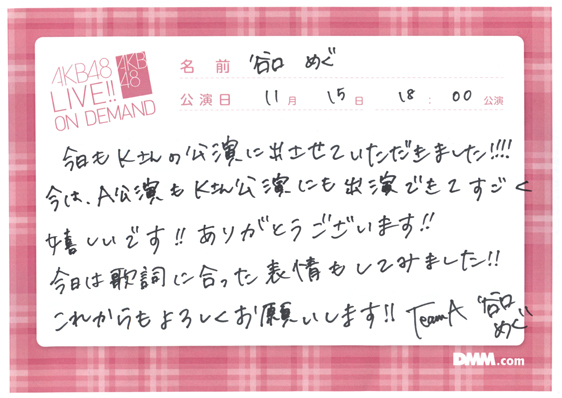 AKB48
LIVE!!
ON DEMAND
AKB
48
名前 谷口 めぐ
公演日 11月 15日 18:00公演
今日もKさんの公演に出させていただきました!!!!
今は、A公演もKさん公演にも出演できてすごく
嬉しいです!! ありがとうございます!!
今日は歌詞に合った表情もしてみました!!
これからもよろしくお願いします!! TeamA 谷口
めぐ
DMM.com